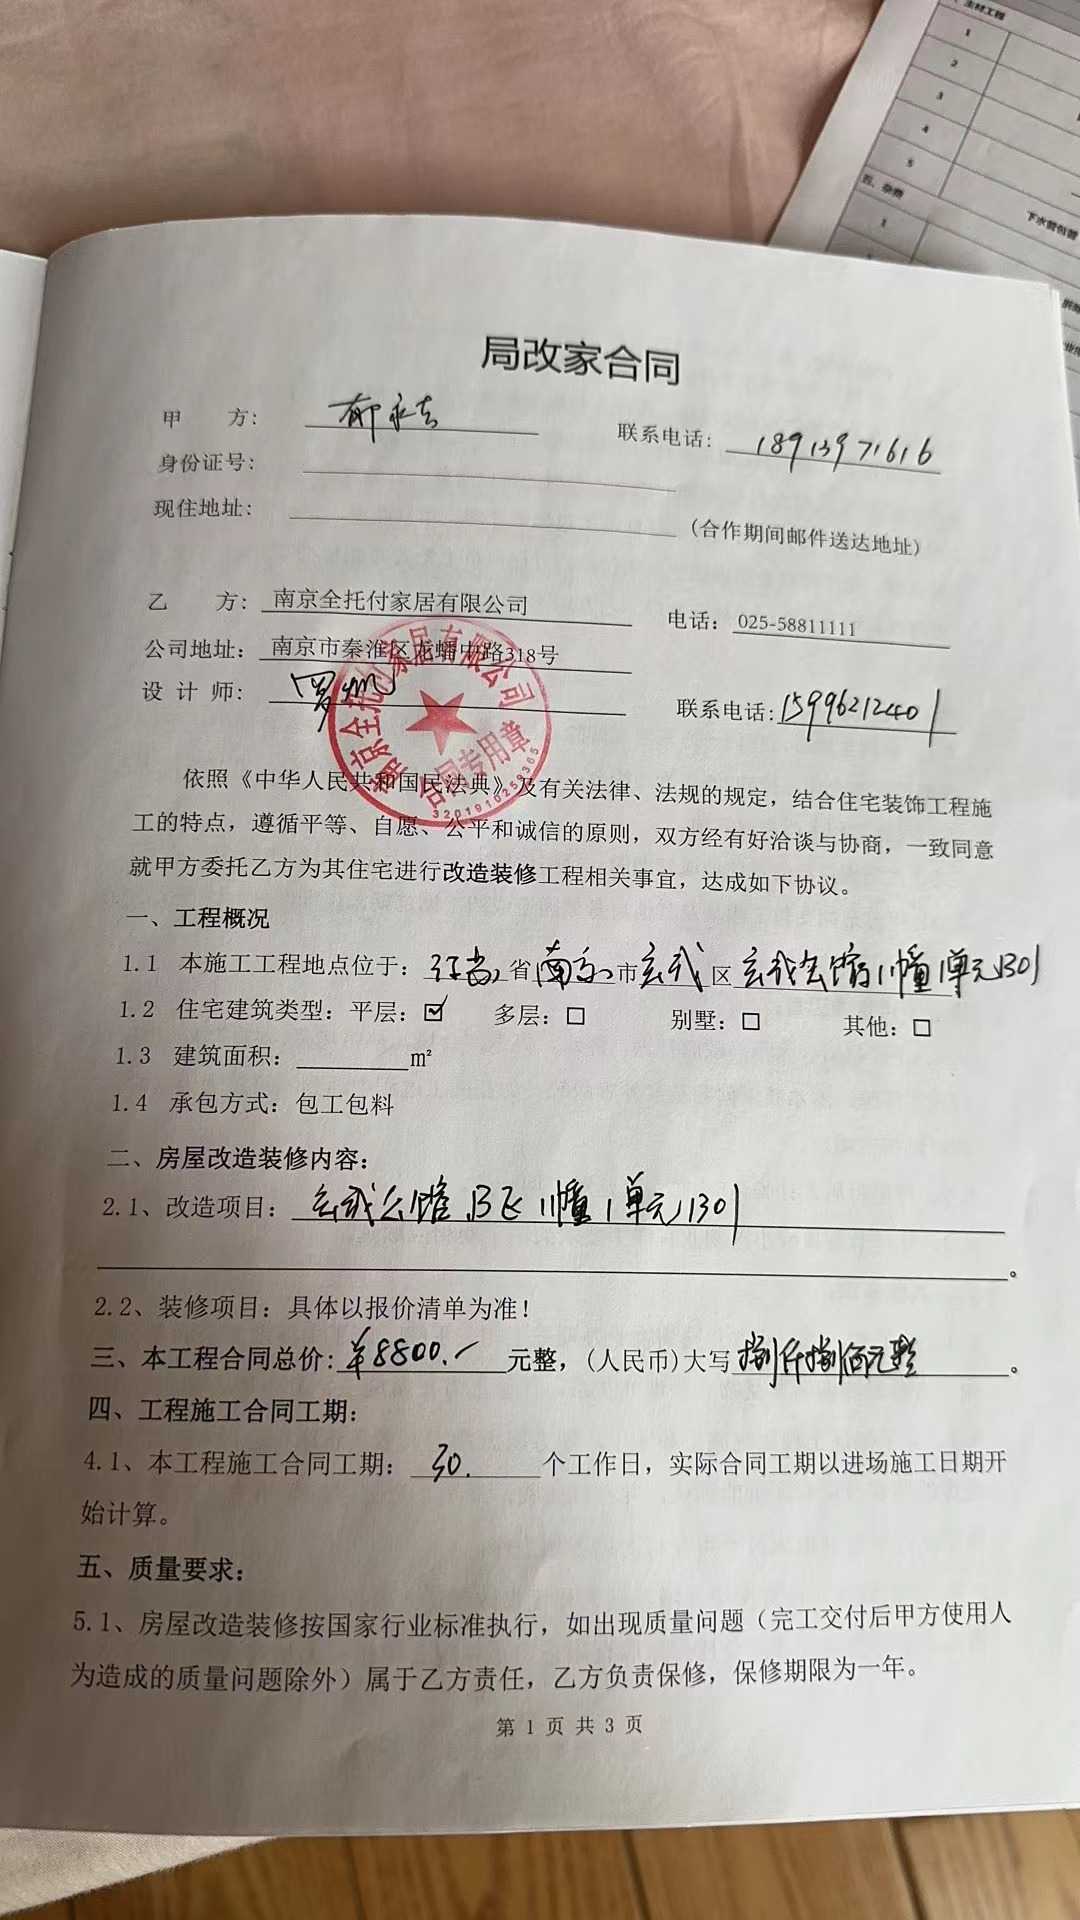 主材工程
1
2
3
4
5
四、杂费
1
下水管包管
局改家合同
甲 方： 郁永吉 联系电话： 18913971616
身份证号：
现住地址： (合作期间邮件送达地址)
乙 方： 南京全托付家居有限公司 电话： 025-58811111
公司地址： 南京市秦淮区龙蟠中路318号
设 计 师： 罗帆 联系电话: 15996212401
南京全托付家居有限公司
合同专用章
3201910259365
依照《中华人民共和国民法典》及有关法律、法规的规定，结合住宅装饰工程施
工的特点，遵循平等、自愿、公平和诚信的原则，双方经有好洽谈与协商，一致同意
就甲方委托乙方为其住宅进行改造装修工程相关事宜，达成如下协议。
一、工程概况
1.1 本施工工程地点位于： 江苏 省 南京 市 玄武 区 玄武公馆 1幢1单元1301
1.2 住宅建筑类型：平层：☑ 多层：□ 别墅：□ 其他：□
1.3 建筑面积：________㎡
1.4 承包方式：包工包料
二、房屋改造装修内容：
2.1、改造项目： 玄武公馆 B区 1幢1单元1301
。
2.2、装修项目：具体以报价清单为准！
三、本工程合同总价: ￥8800.- 元整，(人民币)大写 捌仟捌佰元整 。
四、工程施工合同工期：
4.1、本工程施工合同工期： 30. 个工作日，实际合同工期以进场施工日期开
始计算。
五、质量要求：
5.1、房屋改造装修按国家行业标准执行，如出现质量问题（完工交付后甲方使用人
为造成的质量问题除外）属于乙方责任，乙方负责保修，保修期限为一年。
第 1 页 共 3 页